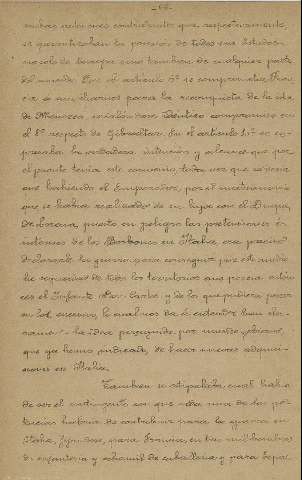 - 66 -
ambas naciones contratantes que, respectivamente,
se garantizaban la posesión de todos sus Estados
no solo de Europa sino tambien de cualquier parte
del mundo. En el artículo 5º se comprometía Fran-
cia a auxiliarnos para la reconquista de la isla
de Menorca, idéntico compromiso en
el 8º respecto de Gibraltar. En el artículo 1º se ex-
presaba la verdadera intención y alcance que por
el pronto tenía este convenio, toda vez que se decía
que habiendo el Emperador, por el matrimonio
que se había realizado de su hija con el Duque
de Lorena, puesto en peligro las pretensiones é
intereses de los Borbones en Italia, era preciso
declararle la guerra para conseguir por este medio
la seguridad de todos los territorios que poseía
el Infante Don Carlos y de los que pudiera poseer
en lo sucesivo, lo cual nos da á entender bien clara-
mente la idea perseguida por nuestro
que ya hemos indicado, de hacer nuevas adquisi-
ciones en Italia.
Tambien se estipulaba cual había
de ser el contingente con que cada una de las po-
tencias habían de contribuir para la guerra en
Italia, fijándose, para Francia, en tres mil hombres
de infantería y ocho mil de caballería y para Espa-